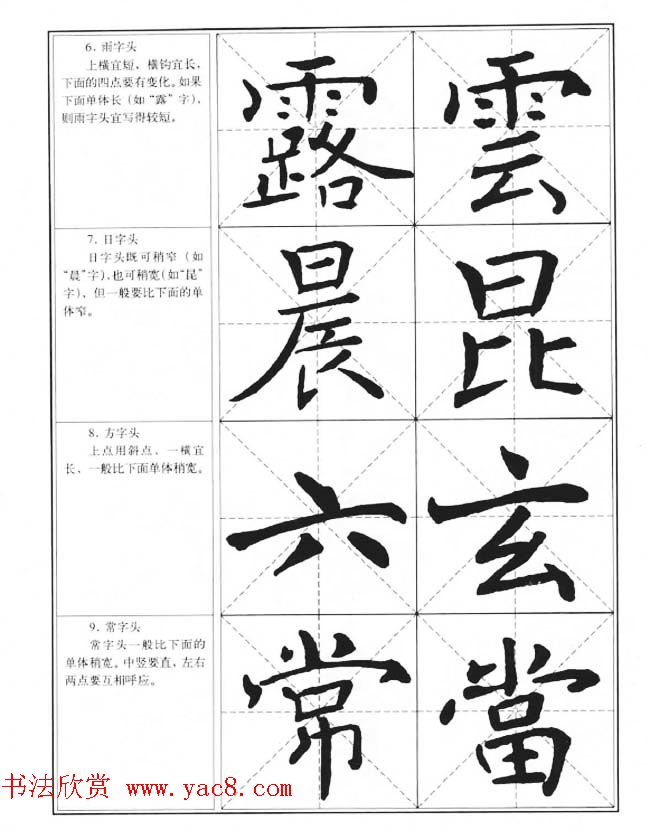 6. 雨字头
上横宜短，横钩宜长，
下面的四点要有变化。如果
下面单体长（如“露”字），
则雨字头宜写得较短。
露 雲
7. 日字头
日字头既可稍窄（如
“晨”字），也可稍宽（如“昆”
字），但一般要比下面的单
体窄。
晨 昆
8. 方字头
上点用斜点，一横宜
长，一般比下面单体稍宽。
六 玄
9. 常字头
常字头一般比下面的
单体稍宽。中竖要直，左右
两点要互相呼应。
常 當
书法欣赏 www.yac8.com